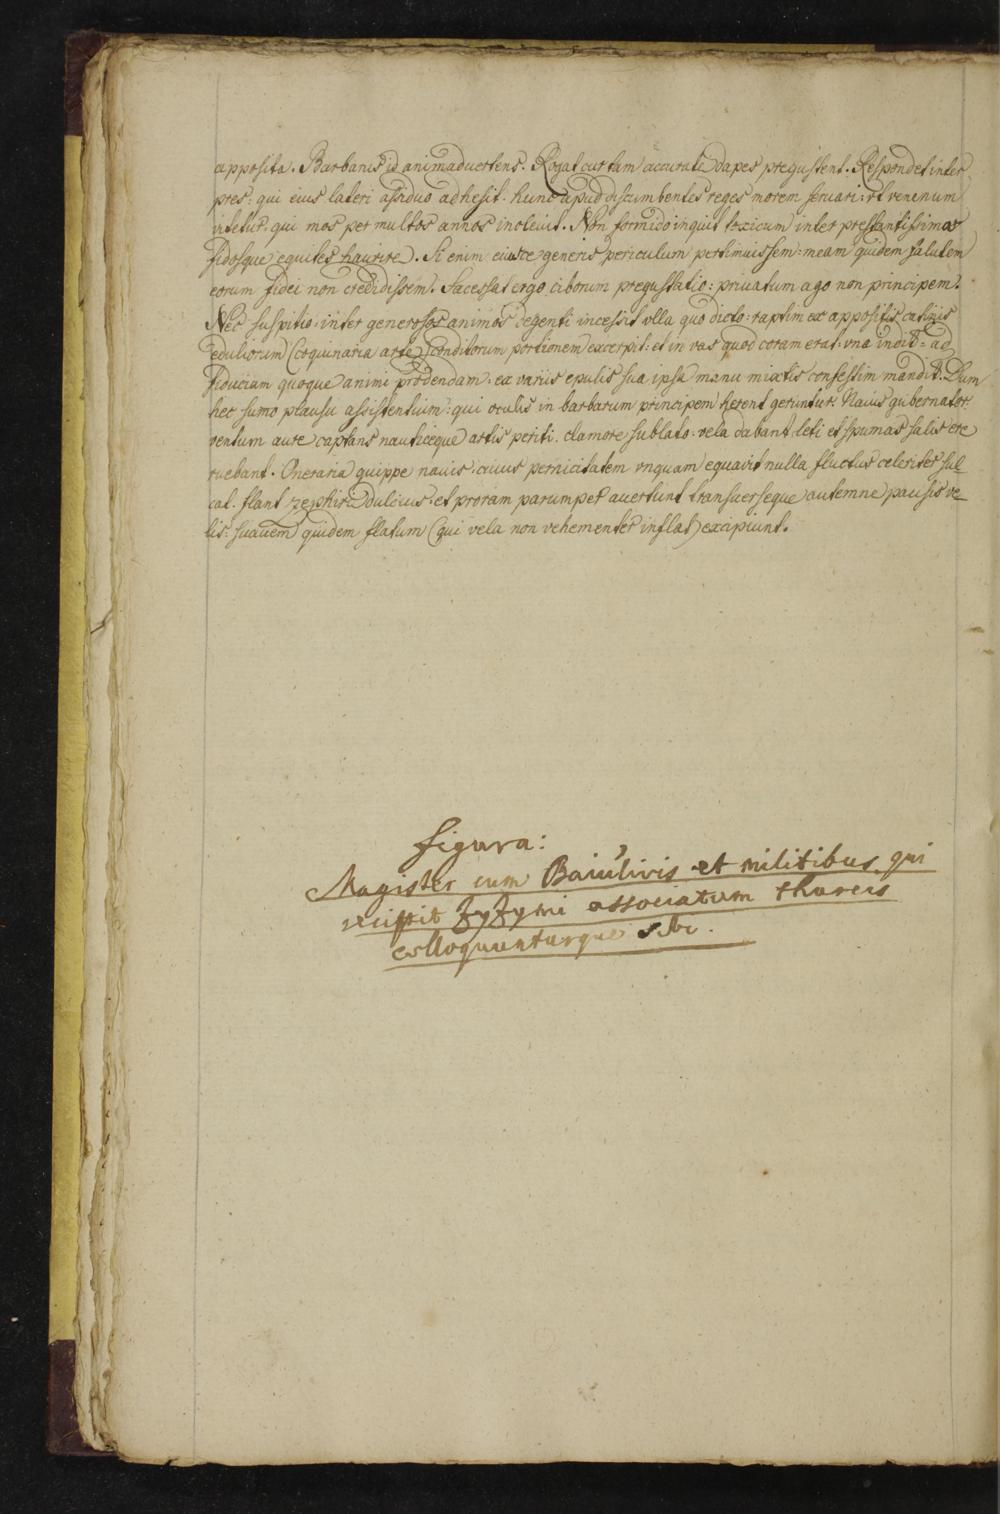 apposita. Barbarus id animaduertens. Rogat cur tam accurate dapes pregustent. Respondet inter
pres: qui eius lateri assiduo adhesit. hunc apud discumbentes reges morem seruari: vt venenum
vitetur. qui mos per multos annos inoleuit. Non formido inquit toxicum inter prestantissimos
fidosque equites haurire. Si enim eiusce generis periculum pertimuissem: meam quidem salutem
eorum fidei non credidissem. Facessat ergo ciborum pregustatio: priuatum ago non principem.
Nec suspitio inter generosos animos degenti incessit vlla quo dicto: raptim ex appositis catinis
eduliorum (coquinaria arte) conditorum portionem excerpit: et in vas quod coram erat. vna indit: ad
fiducium quoque animi prodendam. ex variis epulis sua ipsa manu mixtis confessim mandit. Dum
hec sumo plausu assistentium: qui oculis in barbarum principem herent geruntur. Nauis gubernator.
ventum aure captans nauticeque artis periti. clamore sublato. vela dabant leti et spumas salis ere
ruebant. Oneraria quippe nauis. cuius pernicitatem vnquam equauit nulla fluctus celeriter sul
cat. flant zephiri dulcius. et proram parumper auertunt transuerseque antemne passis ve
lis: suauem quidem flatum (qui vela non vehementer inflat) excipiunt.
figura:
Magister cum Baiuliuis et militibus qui
Zyzymi associatum thurcis
colloquunturque